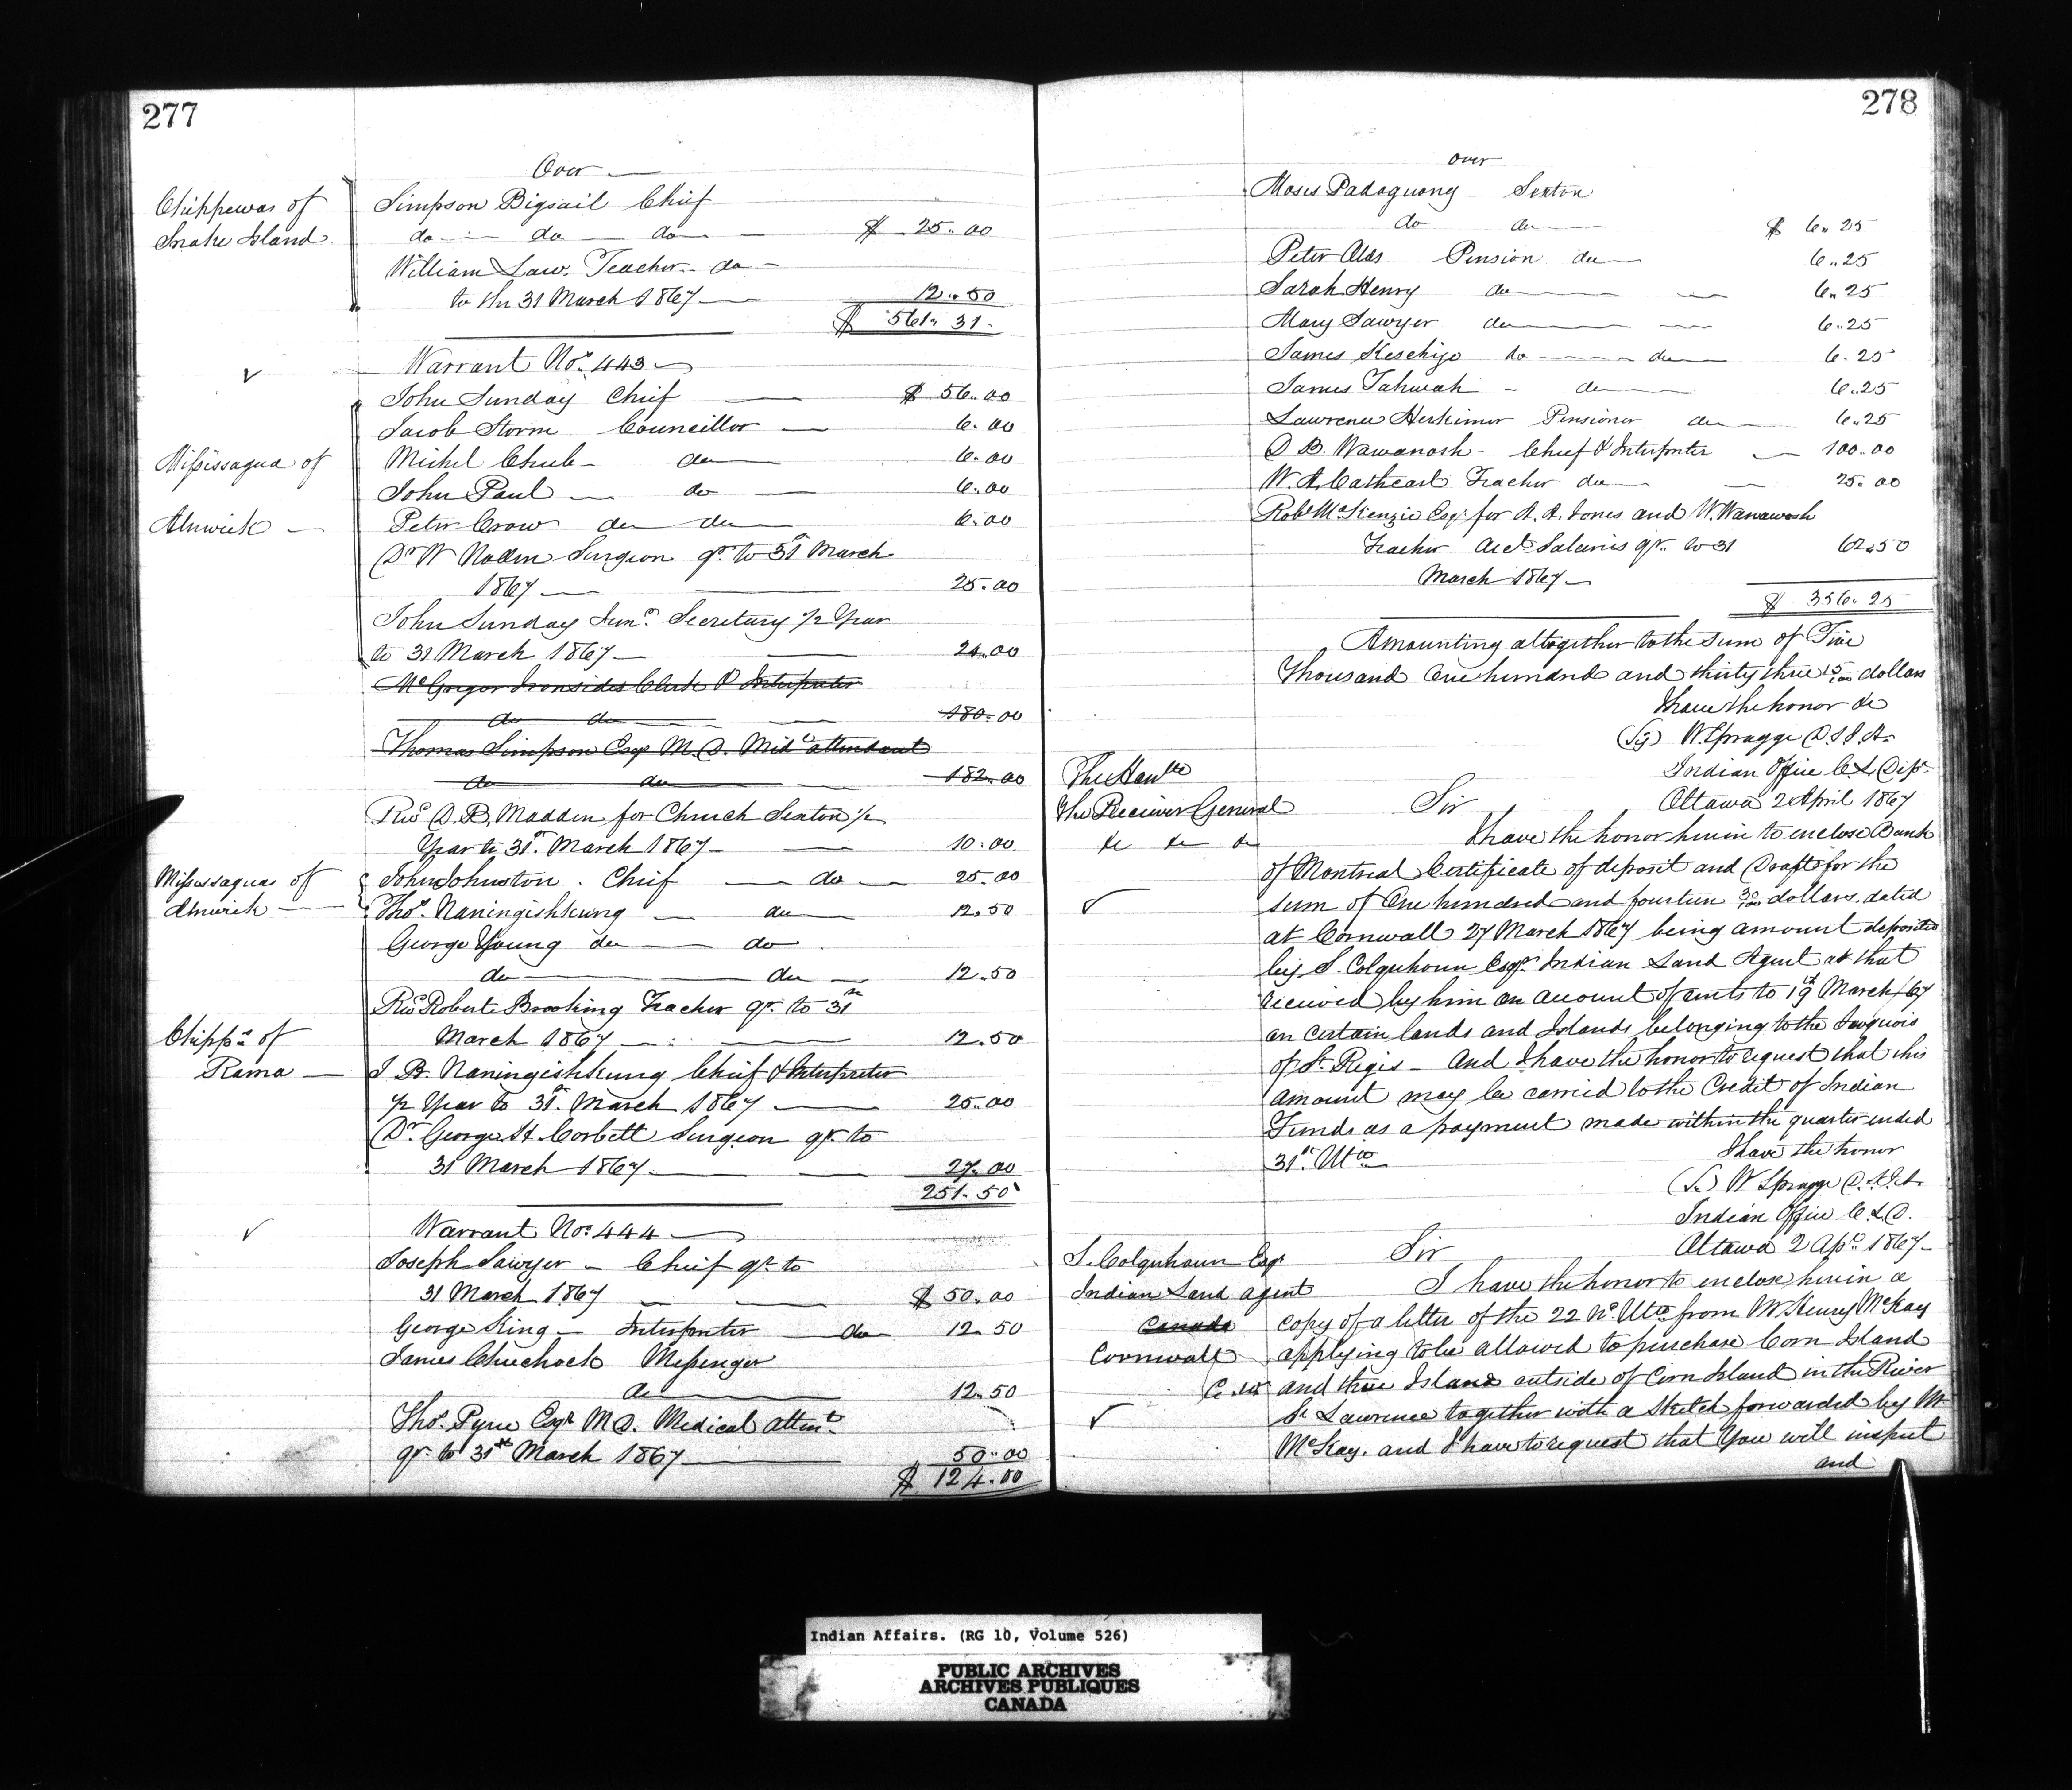 277
Over —
Chippewas of
Snake Island
Simpson Bigsail Chief
do — do — do — $ 25.00
William Law. Teacher - do -
to the 31 March 1867 — 12.50
$ 561.31
Warrant No. 443 —
Missisagua of
Alnwick —
John Sunday Chief — $ 56.00
Jacob Storm Councillor — 6.00
Michel Chub - do — 6.00
John Paul — do — 6.00
Peter Crow do do — 6.00
Dr W Noden Surgeon qr. to 31 March
1867 — 25.00
John Sunday Junr. Secretary 1/2 Year
to 31 March 1867 — 24.00
McGregor Ironsides Clerk & Interpreter
do do — 180.00
Thomas Simpson Esqr M.D. Medl attendant
do do — 182.00
Revd D.B. Madden for Church Sexton 1/2
Year to 31st. March 1867 — 10.00
Missisaguas of
Alnwick —
John Johnston . Chief — do — 25.00
Thos. Naningishkung — do — 12.50
George Young do — do
do — do — 12.50
Revd Robert Brooking Teacher qr. to 31st
March 1867 — 12.50
Chipps of
Rama —
J B. Naningishkung Chief & Interpreter
1/2 Year to 31st. March 1867 — 25.00
Dr. George H. Corbett Surgeon qr. to
31 March 1867 — 27.00
251.50
Warrant No. 444 —
Joseph Sawyer - Chief qr. to
31 March 1867 — $ 50.00
George King - Interpreter — do 12.50
James Chuehock Messenger
do — 12.50
Thos. Pyne Esqr M D. Medical attent.
qr. to 31st March 1867 — 50.00
$ 124.00
278
over
Moses Padaguong Sexton
do do — $ 6.25
Peter Alds Pension do — 6.25
Sarah Henry do — 6.25
Mary Sawyer do — 6.25
James Keschigo do — do — 6.25
James Tahwah - do — 6.25
Lawrence Herkimer Pensioner do — 6.25
D B. Wawanosh - Chief & Interpreter — 100.00
W. A. Cathcart Teacher do — 25.00
Robt McKenzie Esqr. for A. A. Jones and W. Wawanosh
Teacher Acct. Salaries qr. to 31 62.50
March 1867 —
$ 356.25
Amounting altogether to the sum of Five
Thousand One hundred and thirty three 15/100 dollars
I have the honor &c
(Sg) W. Spragge D.S.I.A.
Indian Office C. L. Dept.
Ottawa 2 April 1867
The Honble
The Receiver General
&c &c &c
Sir
I have the honor herein to enclose Bank
of Montreal Certificate of deposit and Draft for the
sum of One hundred and fourteen 30/100 dollars. dated
at Cornwall 27 March 1867 being amount deposited
by S. Colquhoun Esqr. Indian Land Agent at that
received by him on account of rents to 19th March /67
on certain lands and Islands belonging to the Iroquois
of St. Regis - And I have the honor to request that this
amount may be carried to the Credit of Indian
Funds as a payment made within the quarter ended
31st. Ulto
I have the honor
(Sd) W Spragge D.S.I.A.
Indian Office C.L.D.
Ottawa 2 Apl. 1867 -
S. Colquhoun Esqr
Indian Land Agent
Canada
Cornwall
C.W
Sir
I have the honor to enclose herein a
copy of a letter of the 22 nd. Ulto from Mr Henry McKay
applying to be allowed to purchase Corn Island
and three Island outside of Corn Island in the River
St Lawrence together with a Sketch forwarded by Mr
McKay. and I have to request that you will inspect
and
Indian Affairs. (RG 10, Volume 526)
PUBLIC ARCHIVES
ARCHIVES PUBLIQUES
CANADA